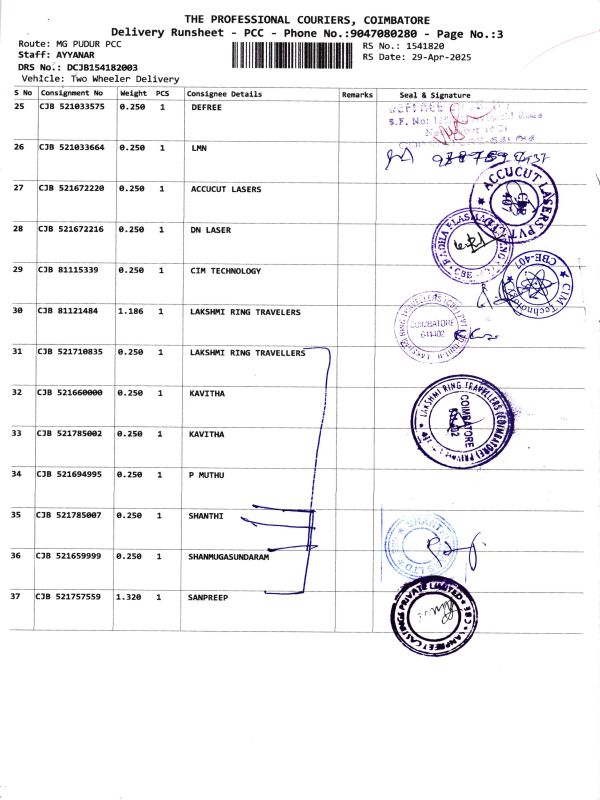 THE PROFESSIONAL COURIERS, COIMBATORE
Delivery Runsheet - PCC - Phone No.:9047080280 - Page No.:3
Route: MG PUDUR PCC RS No.: 1541820
Staff: AYYANAR RS Date: 29-Apr-2025
DRS No.: DCJB154182003
Vehicle: Two Wheeler Delivery
S No Consignment No Weight PCS Consignee Details Remarks Seal & Signature
25 CJB 521033575 0.250 1 DEFREE
S.F. No:
26 CJB 521033664 0.250 1 LMN
27 CJB 521672220 0.250 1 ACCUCUT LASERS
ACCUCUT LASERS PVT LTD
28 CJB 521672216 0.250 1 DN LASER
29 CJB 81115339 0.250 1 CIM TECHNOLOGY
CIM Technology CBE-407
30 CJB 81121484 1.186 1 LAKSHMI RING TRAVELERS
COIMBATORE
641402
31 CJB 521710835 0.250 1 LAKSHMI RING TRAVELLERS
32 CJB 521660000 0.250 1 KAVITHA
LAKSHMI RING TRAVELLERS (COIMBATORE)
COIMBATORE
33 CJB 521785002 0.250 1 KAVITHA
34 CJB 521694995 0.250 1 P MUTHU
35 CJB 521785007 0.250 1 SHANTHI
36 CJB 521659999 0.250 1 SHANMUGASUNDARAM
37 CJB 521757559 1.320 1 SANPREEP
CASTINGS PRIVATE LIMITED